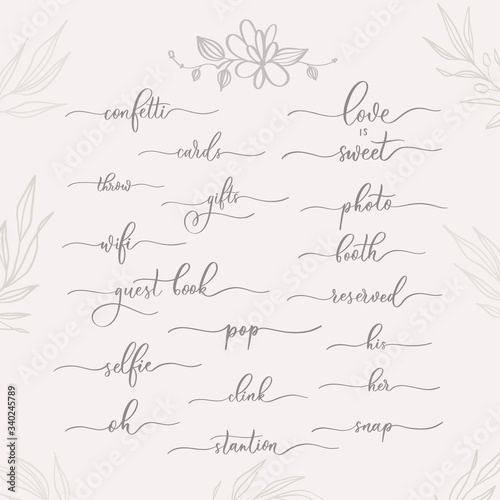 confetti
cards
throw
gifts
wifi
guest book
pop
selfie
clink
oh
stantion
love
IS
sweet
photo
booth
reserved
his
her
snap
Adobe Stock | #340245789